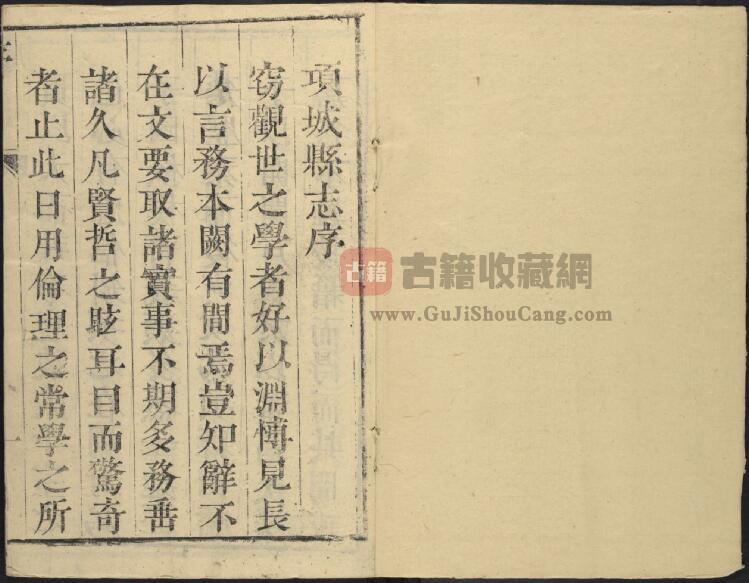 項城縣志序
窃觀世之學者好以淵博見長
以言務本闕有間焉豈知辭不
在文要取諸實事不期多務垂
諸久凡賢哲之駭耳目而驚奇
者止此日用倫理之常學之所
古籍
古籍收藏網
www.GuJiShouCang.com